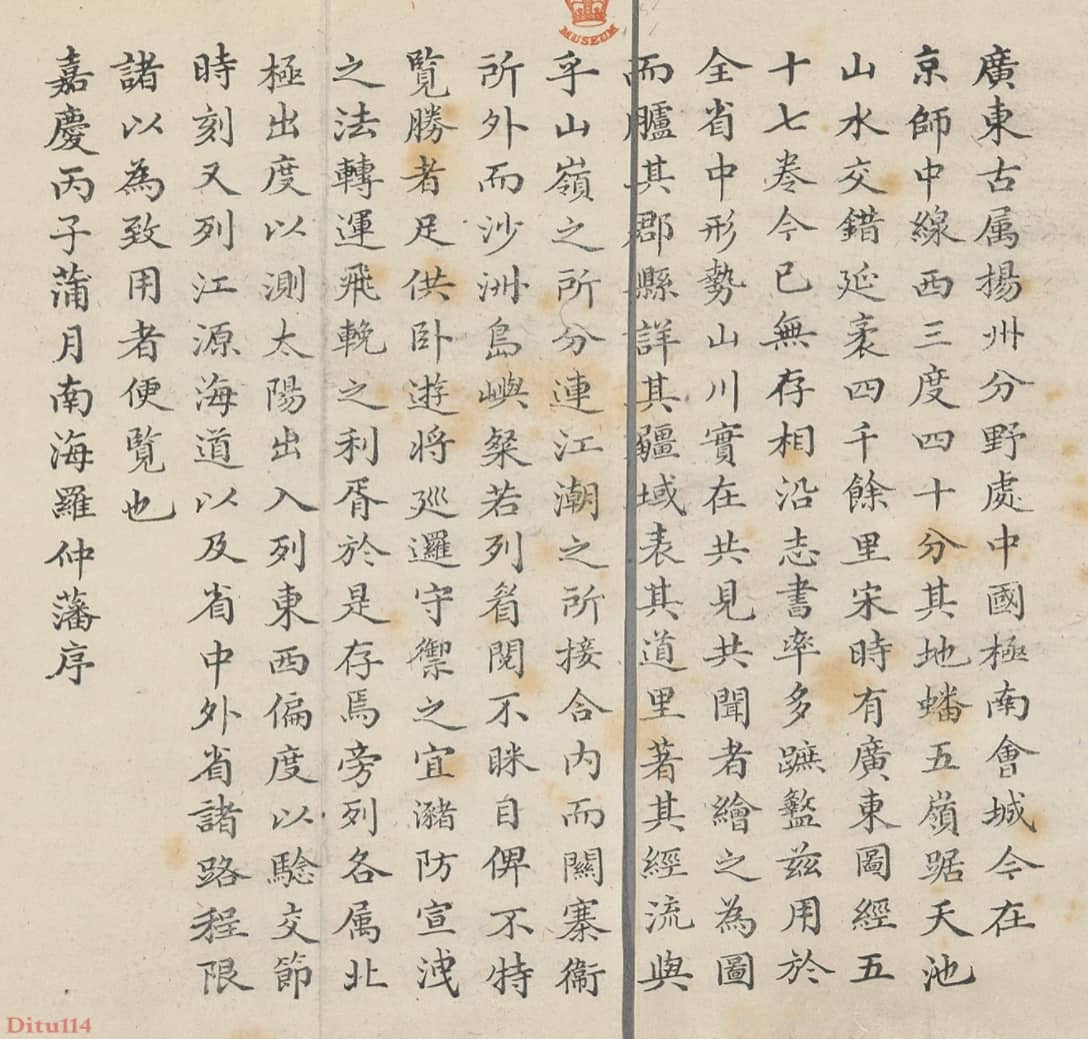 廣東古属揚州分野處中國極南會城今在
京師中線西三度四十分其地蟠五嶺踞天池
山水交錯延袤四千餘里宋時有廣東圖經五
十七卷今已無存相沿志書率多蹠盭茲用於
全省中形勢山川實在共見共聞者繪之為圖
而臚其郡縣詳其疆域表其道里著其經流與
乎山嶺之所分連江潮之所接合内而關寨衞
所外而沙洲島嶼粲若列眉閱不眯目俾不特
覧勝者足供卧遊將廵邏守禦之宜瀦防宣洩
之法轉運飛輓之利胥於是存焉旁列各属北
極出度以測太陽出入列東西偏度以騐交節
時刻又列江源海道以及省中外省諸路程限
諸以為致用者便覧也
嘉慶丙子蒲月南海羅仲藩序
MUSEUM
Ditu114